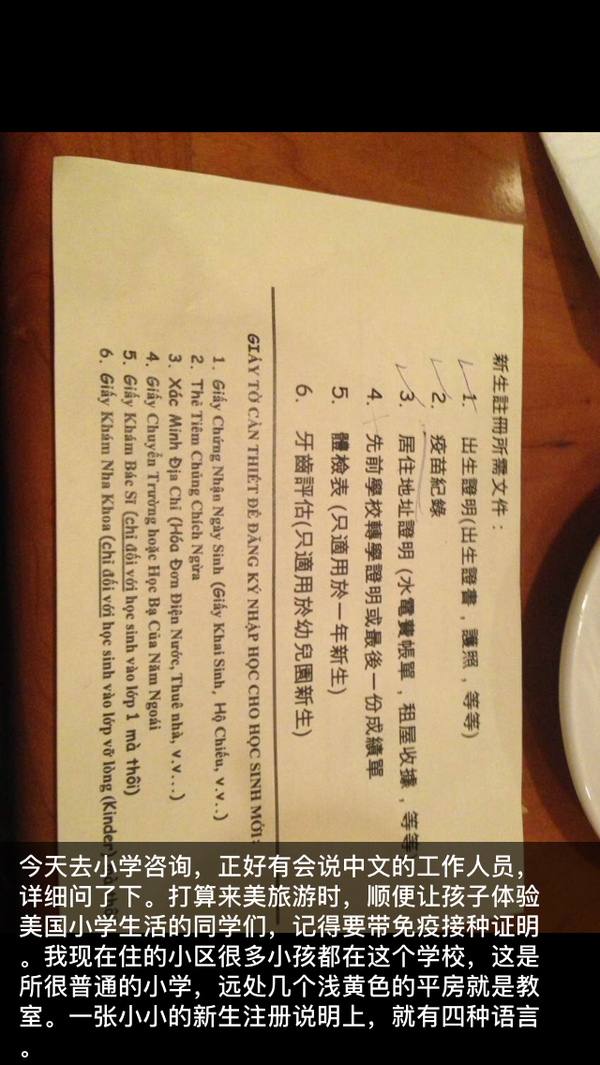 新生註冊所需文件：
1. 出生證明(出生證書，護照，等等)
2. 疫苗紀錄
3. 居住地址證明 (水電費帳單，租屋收據，等等
4. 先前學校轉學證明或最後一份成績單
5. 體檢表 (只適用於一年新生)
6. 牙齒評估(只適用於幼兒園新生)
GIẤY TỜ CẦN THIẾT ĐỂ ĐĂNG KÝ NHẬP HỌC CHO HỌC SINH MỚI:
1. Giấy Chứng Nhận Ngày Sinh (Giấy Khai Sinh, Hộ Chiếu, v.v..)
2. Thẻ Tiêm Chủng Chích Ngừa
3. Xác Minh Địa Chỉ (Hóa Đơn Điện Nước, Thuê nhà, v.v...)
4. Giấy Chuyển Trường hoặc Học Bạ Của Năm Ngoái
5. Giấy Khám Bác Sĩ (chỉ đối với học sinh vào lớp 1 mà thôi)
6. Giấy Khám Nha Khoa (chỉ đối với học sinh vào lớp vỡ lòng (Kinder)
今天去小学咨询，正好有会说中文的工作人员，
详细问了下。打算来美旅游时，顺便让孩子体验
美国小学生活的同学们，记得要带免疫接种证明
。我现在住的小区很多小孩都在这个学校，这是
所很普通的小学，远处几个浅黄色的平房就是教
室。一张小小的新生注册说明上，就有四种语言
。